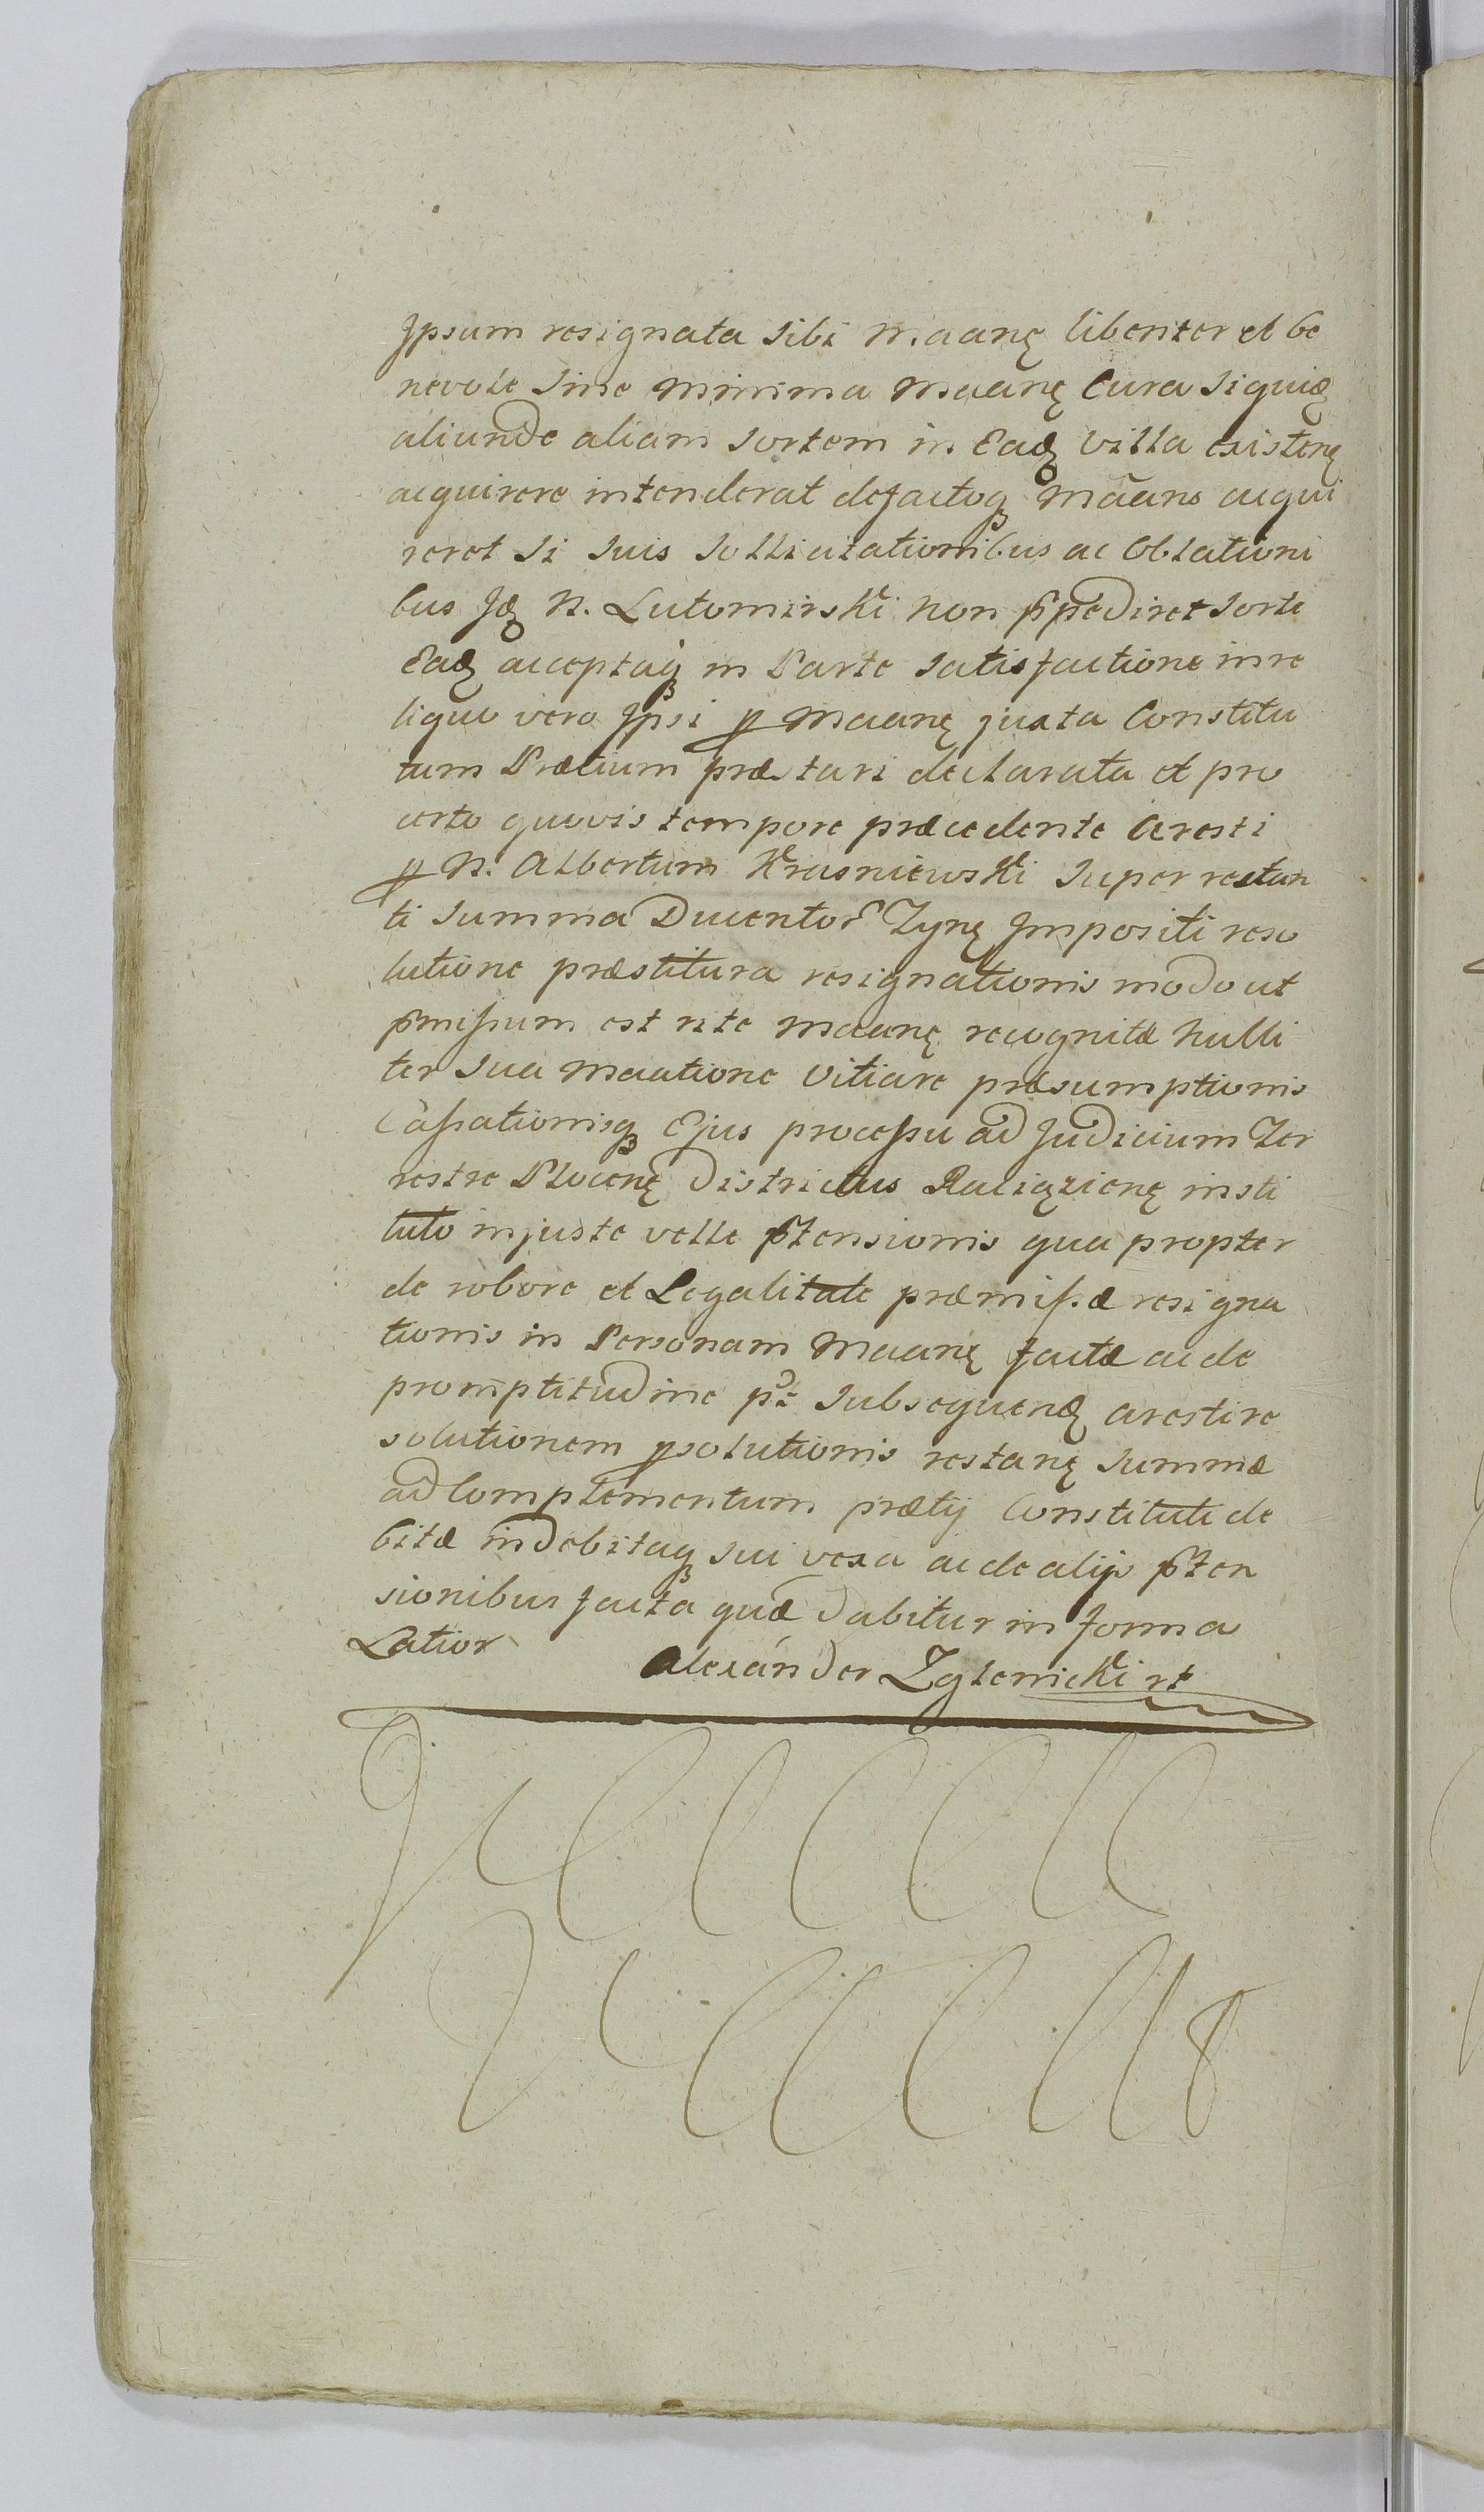 Ipsum resignata sibi Maanę libenter et be
nevole sine minima Maanę Cura siquidę
aliunde aliam sortem in Eadę villa existenę
acquirere intenderat defactoqꝫ Maans acqui
reret si suis sollicitationibus ac Oblationi
bus Idę N. Lutomirski non p̃pediret sorte
Eadę acceptaqꝫ in Parte satisfactione in re
liquo vero Ipsi ꝑ Maanę juxta Constitu
tum Prætium præstari declarata et pro
certo quovis tempore præcedente Aresti
ꝑ N. Albertum Krasniewski super restan
ti summa Ducentor̃ Tynę Impositi reso
lutione præstitura resignationis modo ut
p̃missum est rite Maanę recognitæ nulli
ter sua Maatione vitiare præsumptionis
Cassationisqꝫ Ejus processu ad Judicium Ter
restre Plocenę Districtus Raciązienę insti
tuto injuste velle p̃tensionis qua propter
de robore et Legalitate præmissæ resigna
tionis in Personam Maanę factæ ac de
promptitudine pt̃ subsequendę aresti re
solutionem ꝑsolutionis restanę summæ
ad Complementum prætij Constituti de
bitæ indebitaqꝫ sui vexa ac de alijs p̃ten
sionibus facta quæ dabitur in forma
Latior
Alexander Zglenicki rt